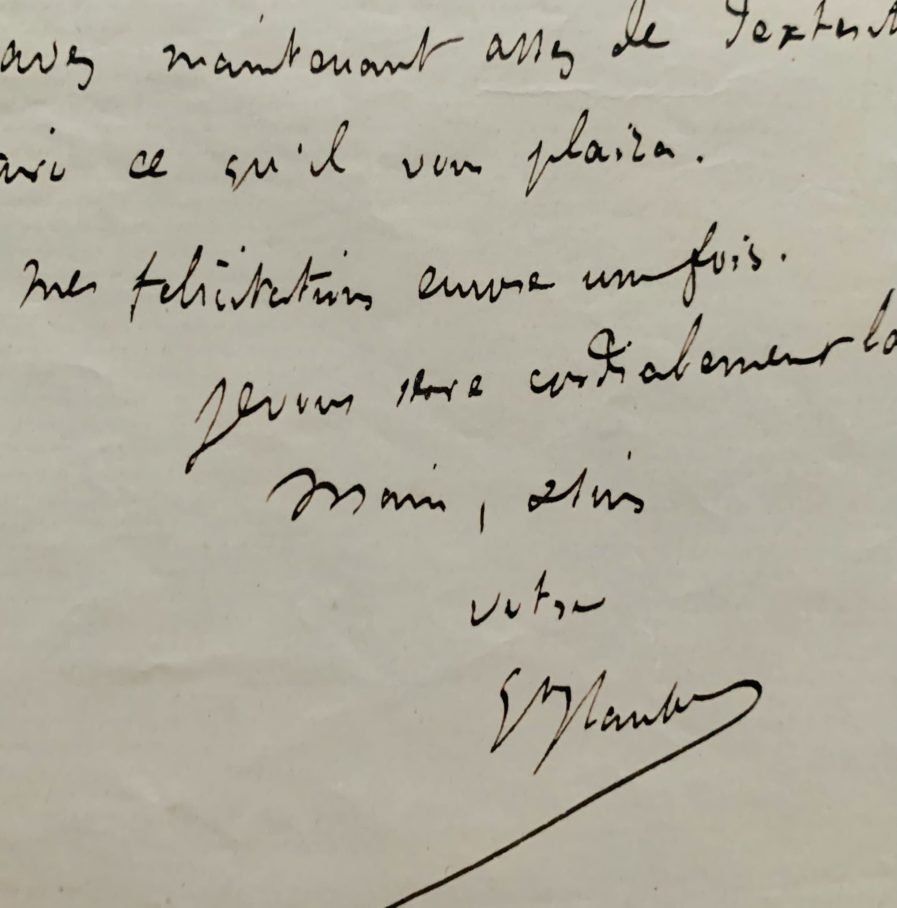 avez maintenant assez de dextérit
aire ce qu'il vous plaira.
Mes félicitations encore une fois.
Je vous serre cordialement la
main, & suis
votre
Gve Flaubert